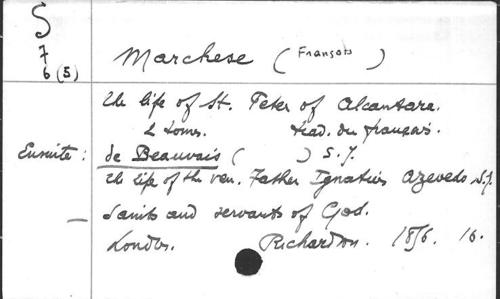 S
7
6 (5)
Marchese (François)
The life of St. Peter of Alcantara.
2 tomes. trad. du français.
Ensuite : de Beauvais ( ) S. J.
The life of the ven. Father Ignatius Azevedo, S.J.
— Saints and servants of God.
Londres. Richardson. 1856. 16.